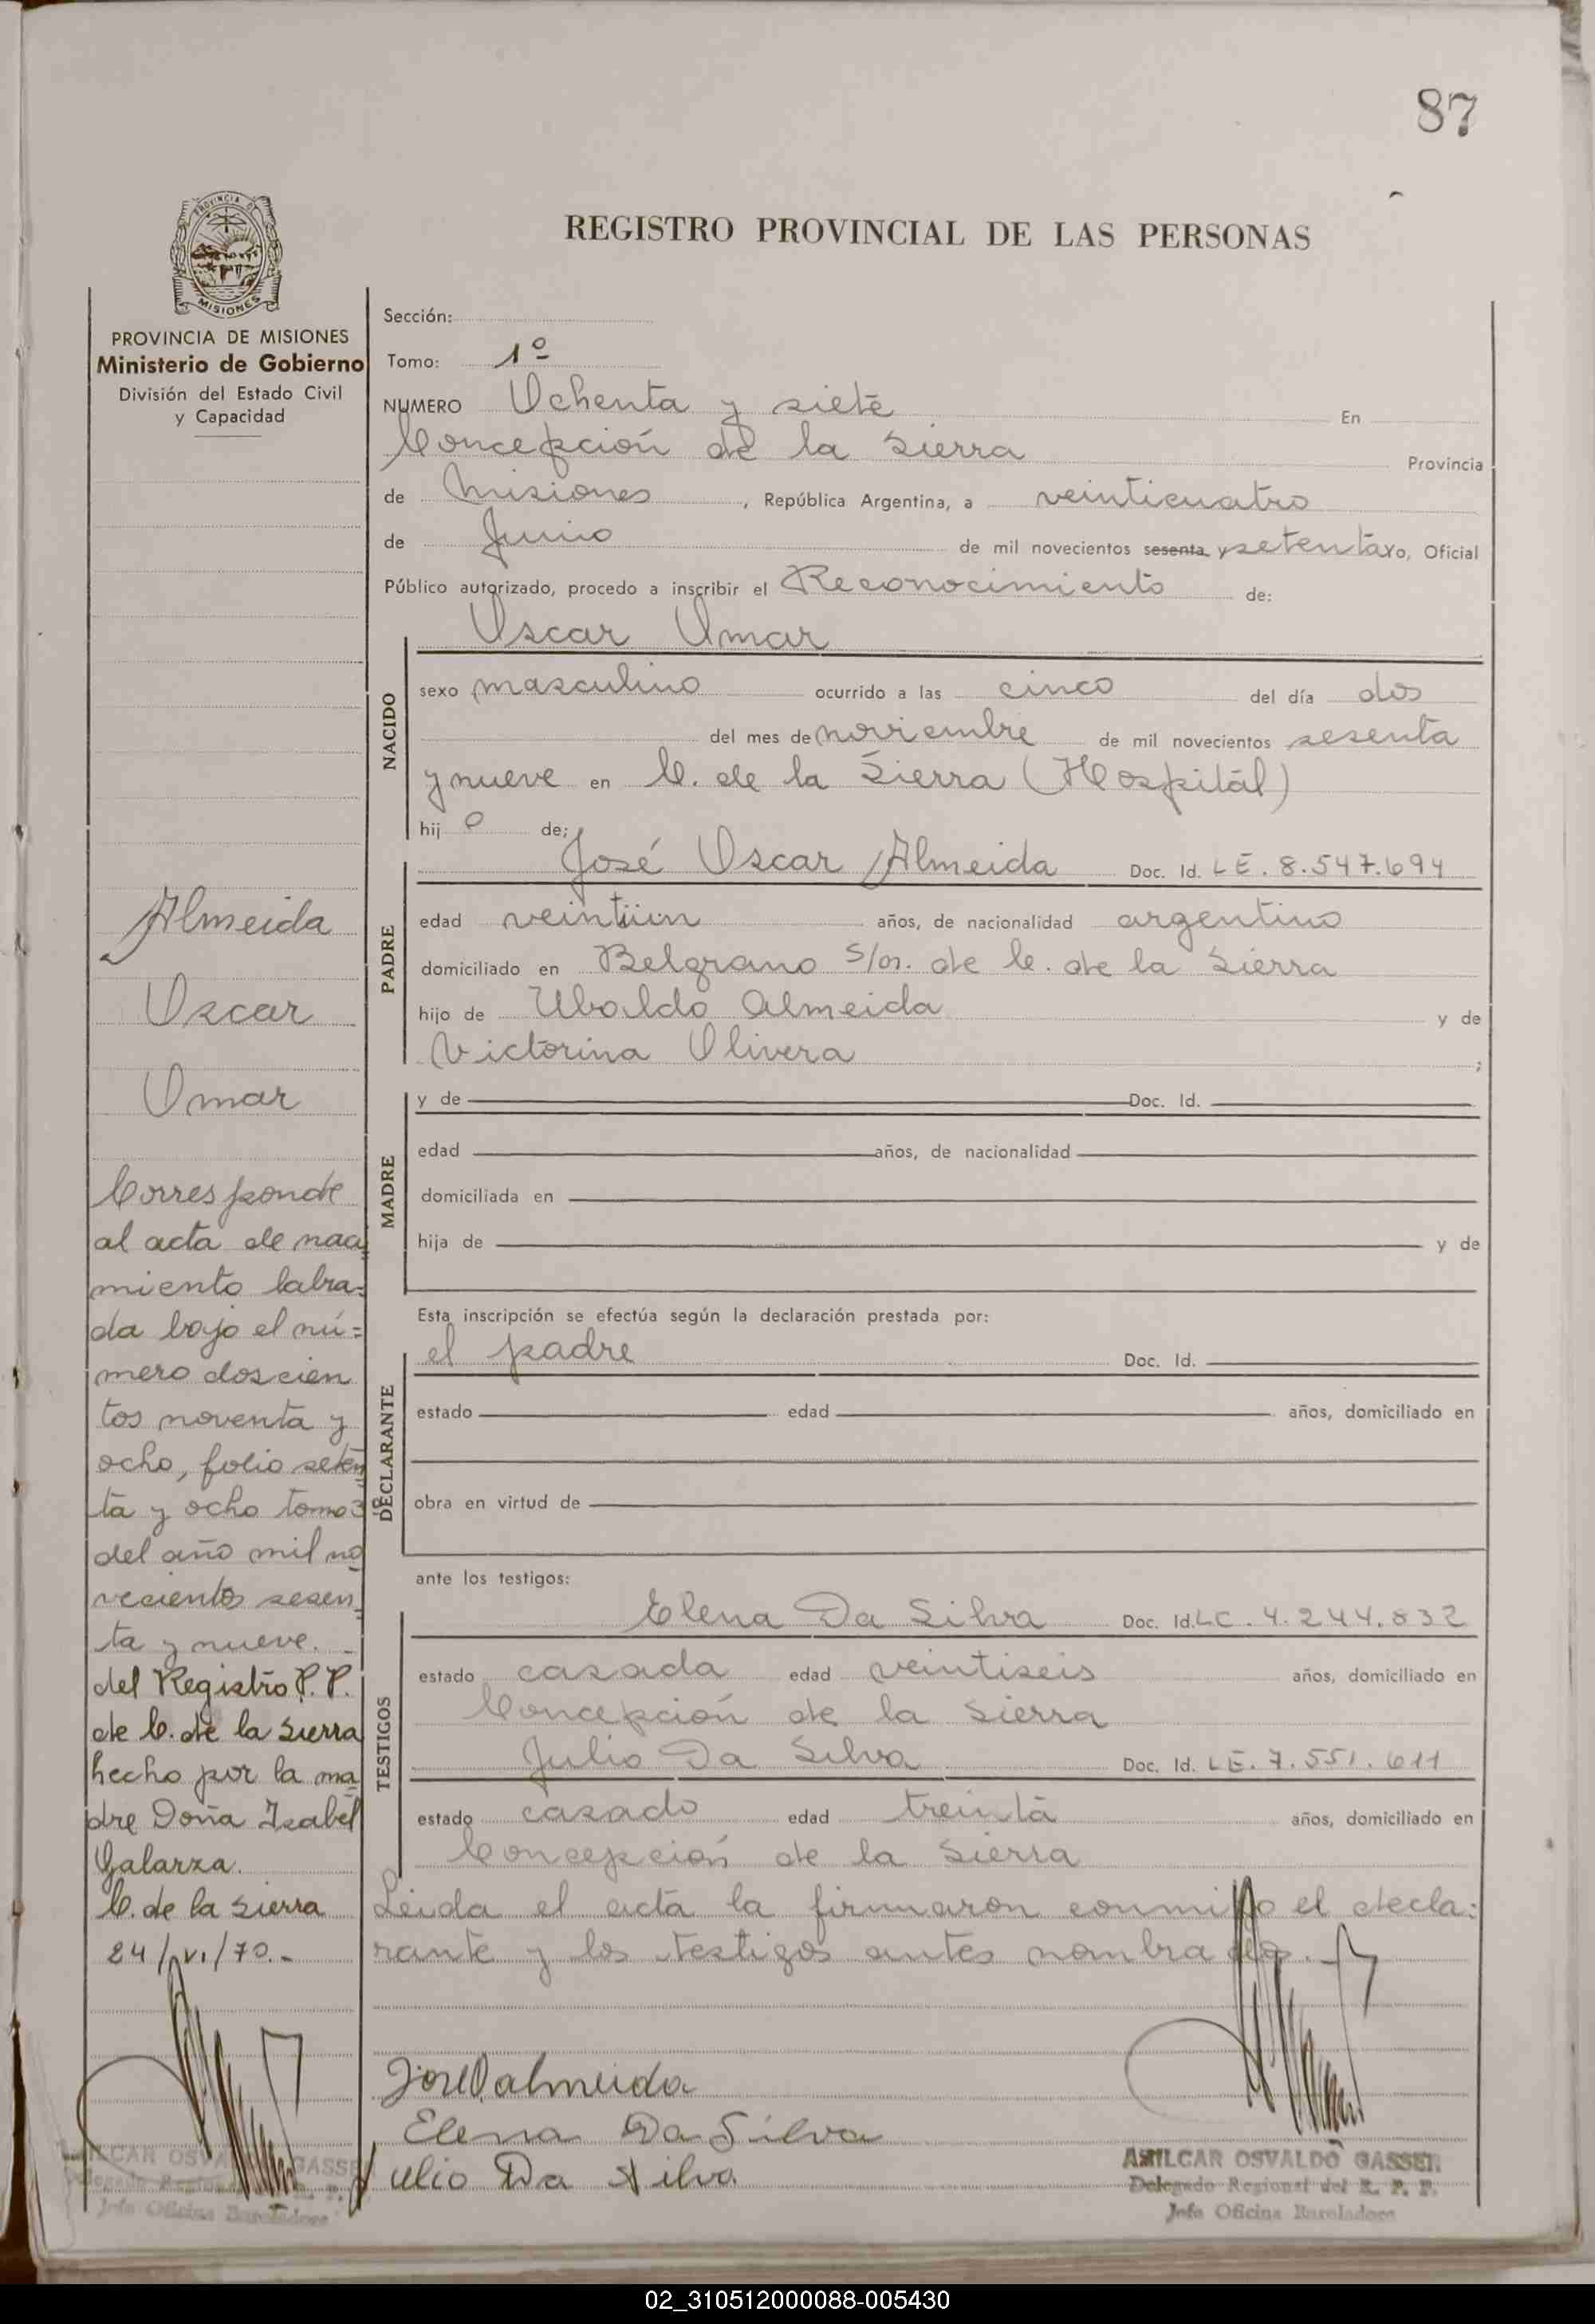 87
REGISTRO PROVINCIAL DE LAS PERSONAS
PROVINCIA DE
MISIONES
PROVINCIA DE MISIONES
Ministerio de Gobierno
División del Estado Civil
y Capacidad
Almeida
Oscar
Omar
Corresponde
al acta de naci
miento labra=
da bajo el nú=
mero doscien
tos noventa y
ocho, folio seten
ta y ocho tomo 3º
del año mil no
vecientos sesen
ta y nueve.
del Registro P.P.
de C. de la Sierra
hecho por la ma
dre Doña Isabel
Galarza.
C. de la Sierra
24/VI/70.-
Sección:
Tomo: 1º
NUMERO Ochenta y siete En
Concepción de la Sierra Provincia
de Misiones, República Argentina, a veinticuatro
de Junio de mil novecientos sesenta y setenta yo, Oficial
Público autorizado, procedo a inscribir el Reconocimiento de:
NACIDO
Oscar Omar
sexo masculino ocurrido a las cinco del día dos
del mes de noviembre de mil novecientos sesenta
y nueve en C. de la Sierra (Hospitál)
hij o de;
PADRE
José Oscar Almeida Doc. Id. LE. 8.547.694
edad veintiún años, de nacionalidad argentino
domiciliado en Belgrano s/n. de C. de la Sierra
hijo de Ubaldo Almeida y de
Victorina Olivera ;
MADRE
y de Doc. Id.
edad años, de nacionalidad
domiciliada en
hija de y de
Esta inscripción se efectúa según la declaración prestada por:
DECLARANTE
el padre Doc. Id.
estado edad años, domiciliado en
obra en virtud de
ante los testigos:
TESTIGOS
Elena Da Silva Doc. Id. LC. 4.244.832
estado casada edad veintiseis años, domiciliado en
Concepción de la Sierra
Julio Da Silva Doc. Id. LE. 7.551.611
estado casado edad treinta años, domiciliado en
Concepción de la Sierra
Leida el acta la firmaron conmigo el decla=
rante y los testigos antes nombrados.
José O. almeida
Elena Da Silva
Julio Da Silva
AMILCAR OSVALDO GASSER
Delegado Regional del R. P. P.
Jefe Oficina
AMILCAR OSVALDO GASSER
Delegado Regional del R. P. P.
Jefe Oficina
02_310512000088-005430